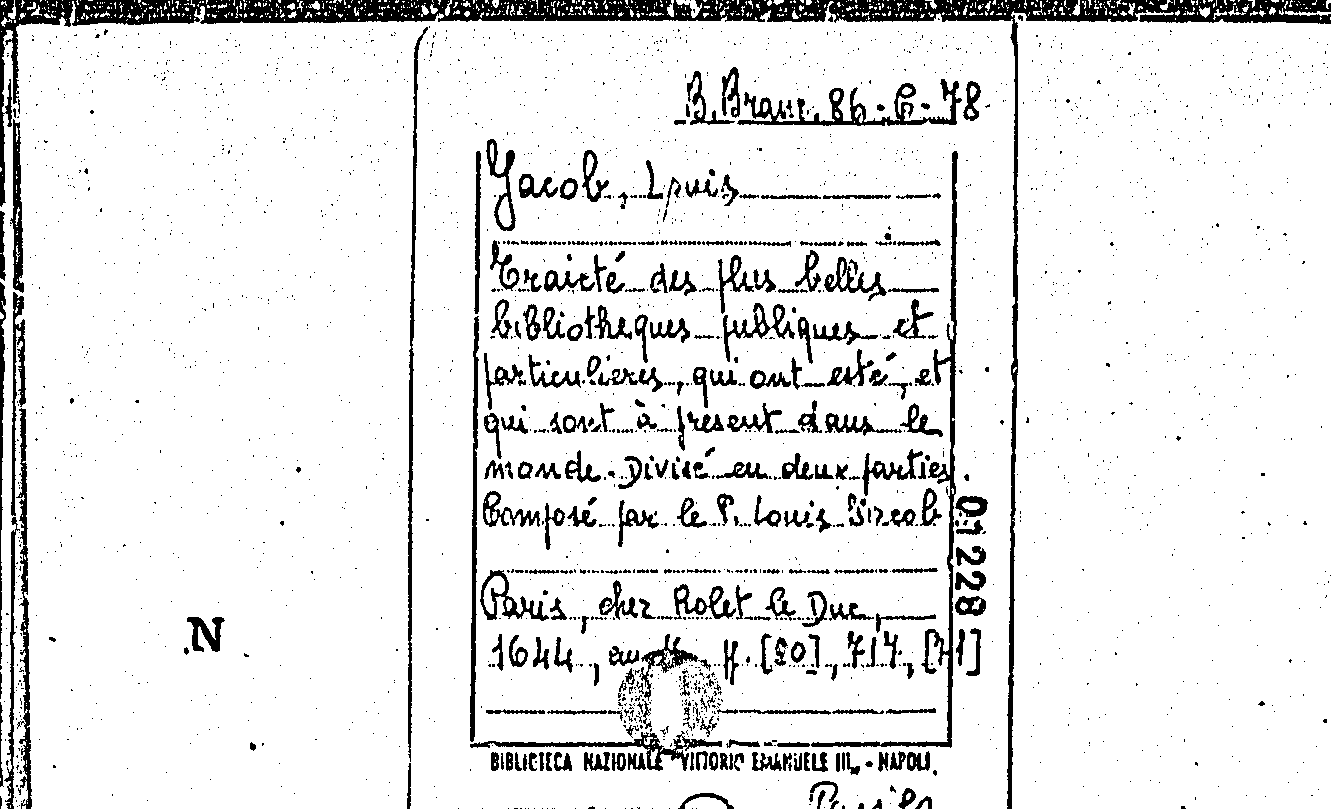 B. Branc. 86-C-78
Jacob, Louis
Traicté des plus belles
bibliotheques publiques et
particulieres, qui ont esté, et
qui sont à present dans le
monde. Divisé en deux parties.
Composé par le P. Louis Jacob
01228
Paris, chez Rolet le Duc,
1644, p. [20], 717, [71]
N
BIBLIOTECA NAZIONALE "VITTORIO EMANUELE III" - NAPOLI.